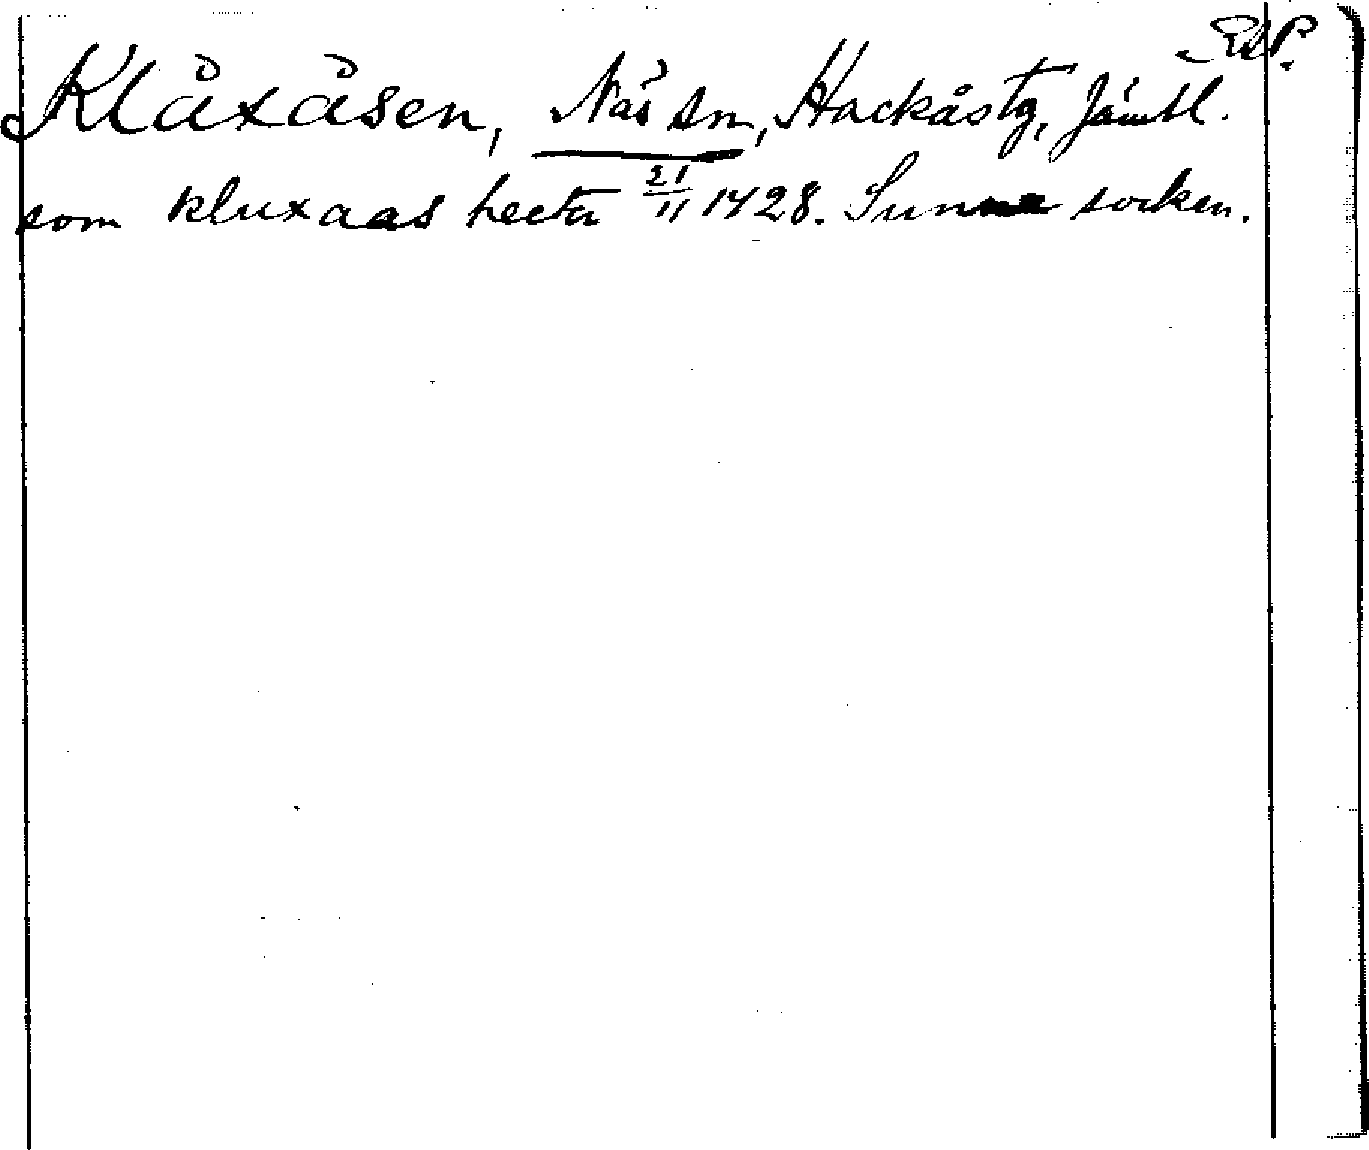 Klåxåsen, Näs sn, Hackås tg, Jämtl.
som kluxaas hecta 21/11 1428. Sunne socken.